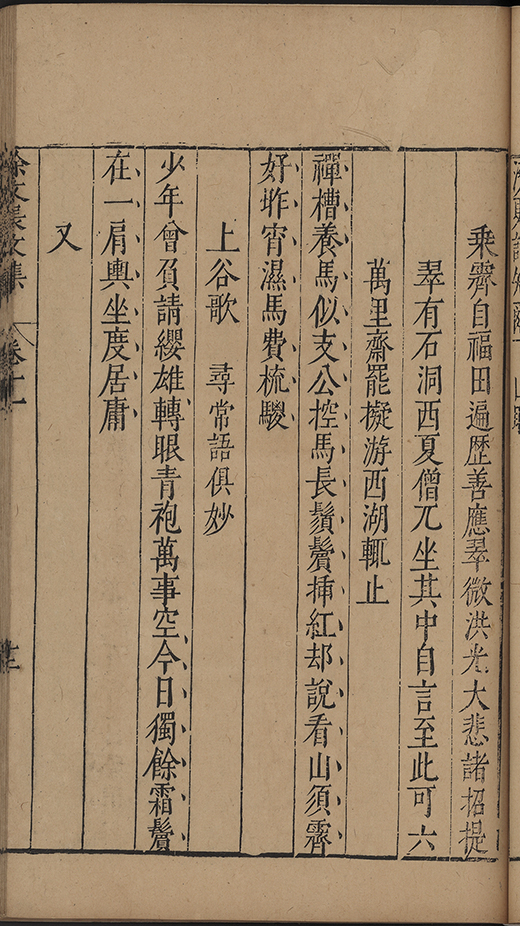 乘霽自福田遍歷善應翠微洪光大悲諸招提
翠有石洞西夏僧兀坐其中自言至此可六
萬里齋罷擬游西湖輒止
禪槽養馬似支公控馬長鬚鬢揷紅却說看山須霽
好昨宵濕馬費梳騣
上谷歌 尋常語俱妙
少年曾負請纓雄轉眼青袍萬事空今日獨餘霜鬢
在一肩輿坐度居庸
又
徐文長文集 卷十一